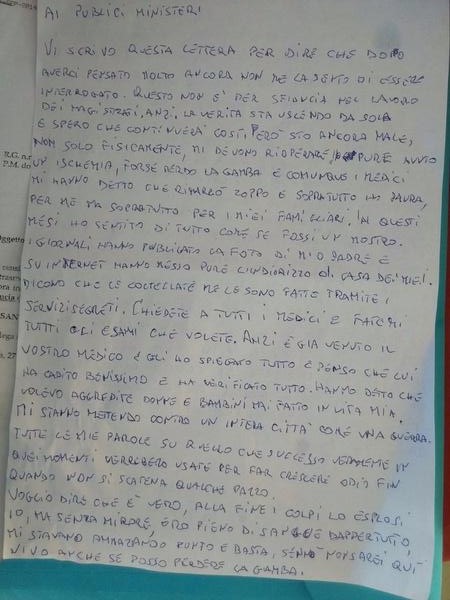 AI PUBLICI MINISTERI
VI SCRIVO QUESTA LETTERA PER DIRE CHE DOPO
AVERCI PENSATO MOLTO ANCORA NON ME LA SENTO DI ESSERE
INTERROGATO. QUESTO NON E' PER SFIDUCIA NEL LAVORO
DEI MAGISTRATI, ANZI, LA VERITA STA USCENDO DA SOLA
E SPERO CHE CONTINUERÀ COSÌ. PERÒ STO ANCORA MALE,
NON SOLO FISICAMENTE, MI DEVONO RIOPERARE, PURE AVUTO
UN ISCHEMIA, FORSE PERDO LA GAMBA E COMUNQUE I MEDICI
MI HANNO DETTO CHE RIMARRÒ ZOPPO E SOPRATUTTO HO PAURA,
PER ME MA SOPRATUTTO PER I MIEI FAMILIARI. IN QUESTI
MESI HO SENTITO DI TUTTO COME SE FOSSI UN MOSTRO.
I GIORNALI HANNO PUBLICATO LA FOTO DI MIO PADRE E
SU INTERNET HANNO MESSO PURE L'INDIRIZZO DI CASA DEI MIEI.
DICONO CHE LE COLTELLATE ME LE SONO FATTE TRAMITE I
SERVIZI SEGRETI. CHIEDETE A TUTTI I MEDICI E FATEMI
TUTTI GLI ESAMI CHE VOLETE. ANZI È GIÀ VENUTO IL
VOSTRO MEDICO E GLI HO SPIEGATO TUTTO E PENSO CHE LUI
HA CAPITO BENISSIMO E HA VERIFICATO TUTTO. HANNO DETTO CHE
VOLEVO AGGREDIRE DONNE E BAMBINI MAI FATTO IN VITA MIA.
MI STANNO METTENDO CONTRO UN INTERA CITTÀ COME UNA GUERRA.
TUTTE LE MIE PAROLE SU QUELLO CHE SUCCESSO VERAMENTE IN
QUEI MOMENTI VERREBERO USATE PER FAR CRESCERE ODIO FIN
QUANDO NON SI SCATENA QUALCHE PAZZO.
VOGLIO DIRE CHE È VERO, ALLA FINE I COLPI LO ESPLOSI
IO, MA SENZA MIRARE, ERO PIENO DI SANGUE DAPPERTUTTO,
MI STAVANO AMMAZANDO PUNTO E BASTA, SENNÒ NON SAREI QUI
VIVO ANCHE SE POSSO PERDERE LA GAMBA.
R.G. n.r
P.M. do
Oggetto